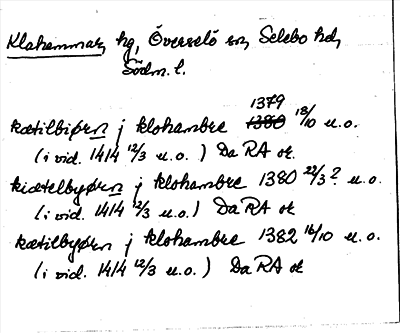 Klahammar, hg, Överselö sn, Selebo hd,
Södm. l.
1379
kætilbiørn j klohambre 1380 18/10 u.o.
(i vid. 1414 12/3 u.o.) Da RA or.
kiætelbyørn j klohambre 1380 22/3? u.o.
(i vid. 1414 12/3 u.o.) Da RA or
kætilbyørn j klohambre 1382 16/10 u.o.
(i vid. 1414 12/3 u.o.) Da RA or